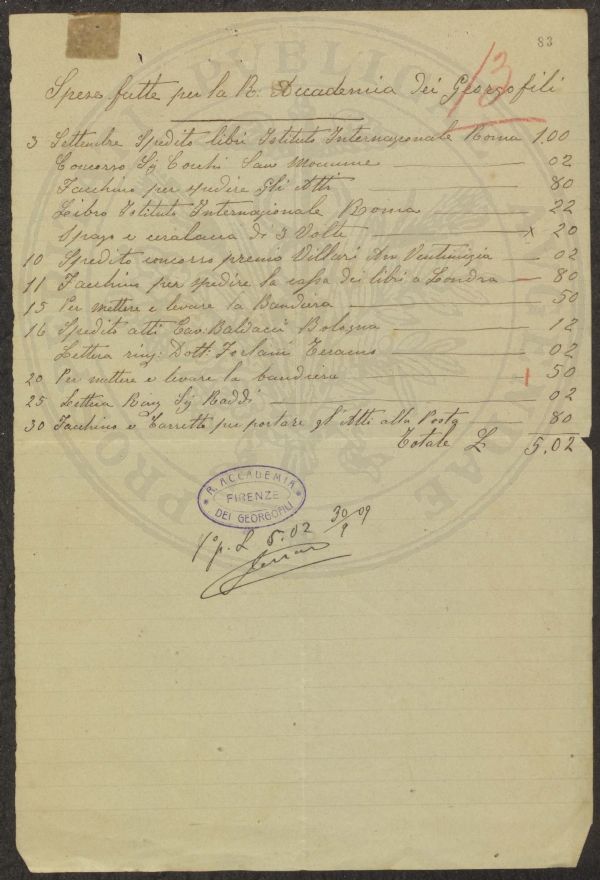 83
13
Spese fatte per la R. Accademia dei Georgofili
3 Settembre Spedito libri Istituto Internazionale Roma 1.00
Concorso Sig Cocchi San 02
Facchino per spedire gli Atti 80
Libro Istituto Internazionale Roma 22
Spago e ceralacca di 3 Volte x 20
10 Spedito concorso premio Villari 02
11 Facchino per spedire la cassa dei libri a Londra 80
15 Per mettere e levare la Bandiera 50
16 Spedito atti Cav: Baldacci Bologna 12
Lettera ring: Dott: Forlani Teramo 02
20 Per mettere e levare la bandiera 50
25 Lettera Ring Sig Raddi 02
30 Facchino e Carretto per portare gl'Atti alla Posta 80
Totale £ 5.02
R. ACCADEMIA
FIRENZE
DEI GEORGOFILI
p. £ 5.02 30/9 09